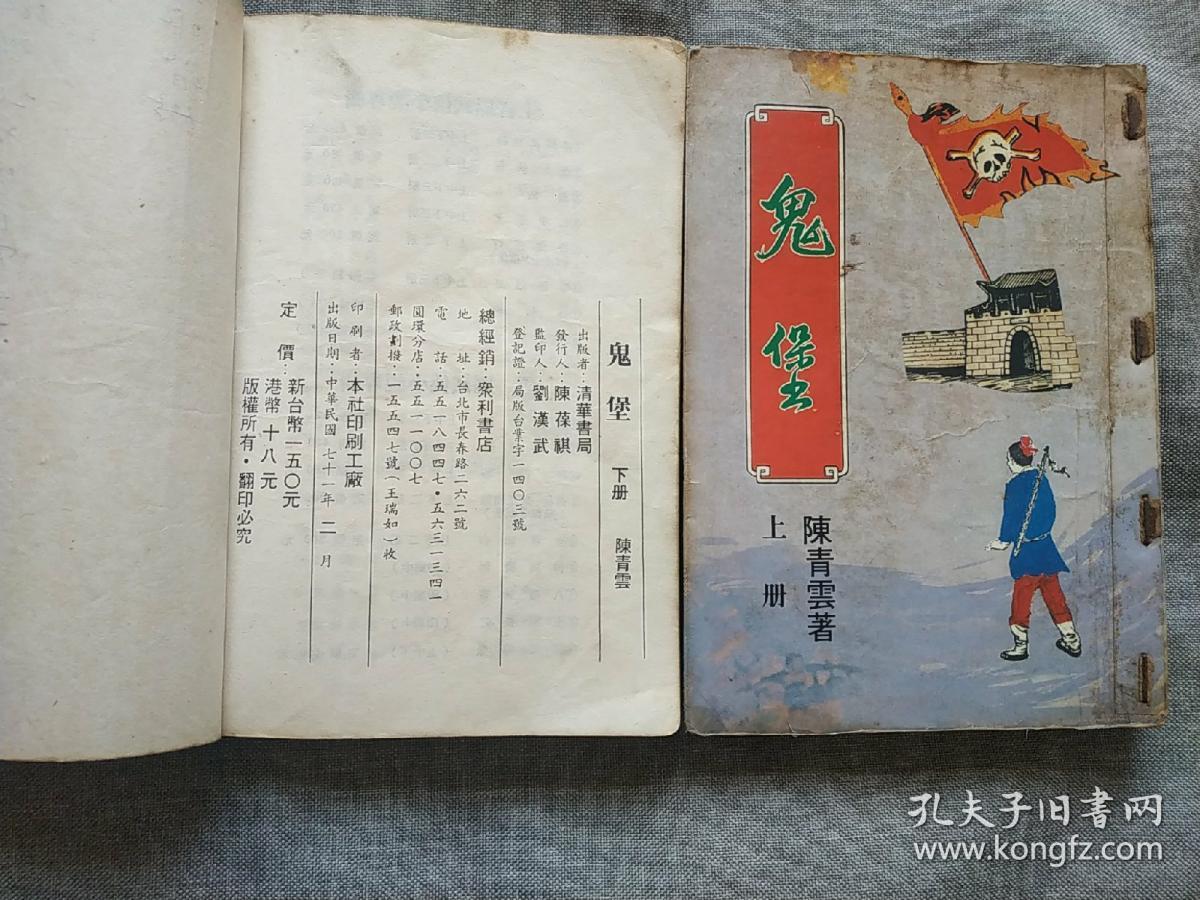 鬼堡　下册　陳青雲
出版者·清華書局
發行人·陳葆祺
監印人·劉漢武
登記證·局版台業字一四〇三號
總經銷·衆利書店
地址·台北市長春路二六二號
電話·五五一八四四七·五六三一三四一
圓環分店·五五一一〇〇七
郵政劃撥·一五五四七號(王瑞如)收
印刷者·本社印刷工廠
出版日期·中華民國七十一年二月
定價·新台幣一五〇元
港幣十八元
版權所有·翻印必究
鬼堡
陳青雲著
上册
孔夫子旧书网
www.kongfz.com